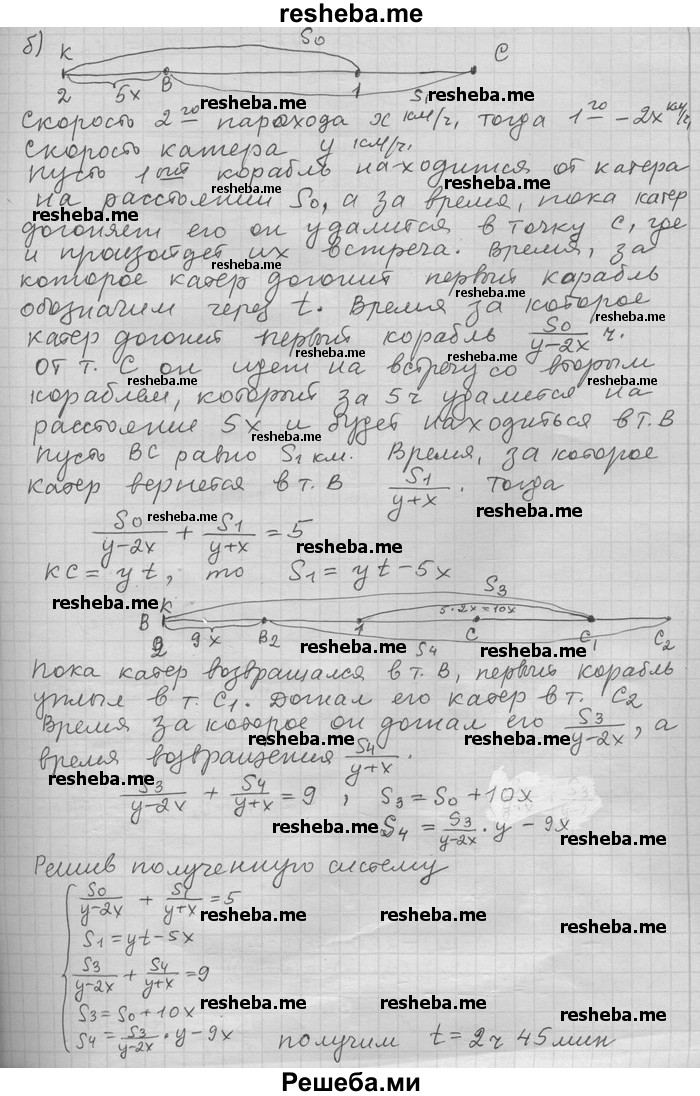 resheba.me
б) K S₀ C
2 5x B 1 S₁
Скорость 2го парохода x км/ч, тогда 1го - 2x км/ч
скорость катера y км/ч.
Пусть 1ый корабль находится от катера
на расстоянии S₀, а за время, пока катер
догоняет его он удалится в точку C, где
и произойдет их встреча. Время, за
которое катер догонит первый карабль
обозначим через t. Время за которое
катер догонит первый корабль S₀/(y-2x) ч.
От т. C он идет на встречу со вторым
кораблем, который за 5 ч удалится на
расстояние 5x и будет находиться в т. B
Пусть BC равно S₁ км. Время, за которое
катер вернется в т. B S₁/(y+x). Тогда
S₀/(y-2x) + S₁/(y+x) = 5
KC = yt, то S₁ = yt - 5x
K S₃
5·2x=10x
B 9x B₂ 1 C S₄ C₁ C₂
2
Пока катер возвращался в т. B, первый корабль
уплыл в т. C₁. Догнал его катер в т. C₂
Время за которое он догнал его S₃/(y-2x), а
время возвращения S₄/(y+x).
S₃/(y-2x) + S₄/(y+x) = 9, S₃ = S₀ + 10x
S₄ = S₃/(y-2x) · y - 9x
Решив полученную систему
S₀/(y-2x) + S₁/(y+x) = 5
S₁ = yt - 5x
S₃/(y-2x) + S₄/(y+x) = 9
S₃ = S₀ + 10x
S₄ = S₃/(y-2x) · y - 9x получим t = 2ч 45мин
Решеба.ми